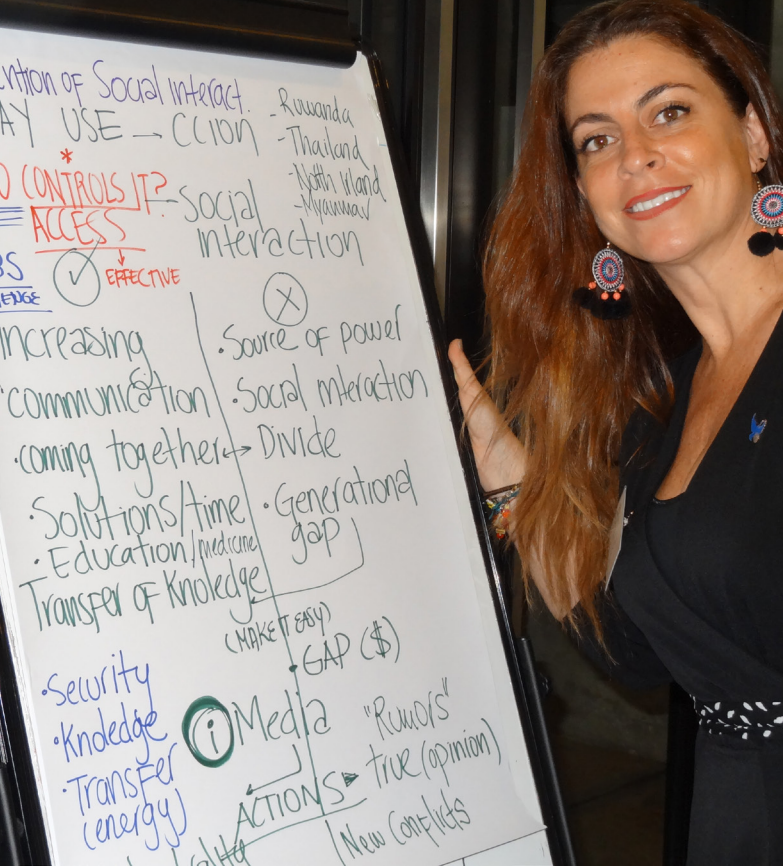 ention of Social interact.
AY USE → CCION
- Ruwanda
- Thailand
- Noth Irland
- Myanmar
*
O CONTROLS IT?
ACCESS
EFFECTIVE
- Social
interaction
BS
ENGE
✓
X
increasing
communication
· coming together ↔ Divide
· Solutions/time
· Education/medicine
Transfer of Knoledge
· Source of power
· Social Interaction
· Generational
gap
(MAKE IT EASY)
· GAP ($)
· Security
· Knoledge
· Transfer
(energy)
i Media
"Rumors"
true (opinion)
ACTIONS
New Conflicts